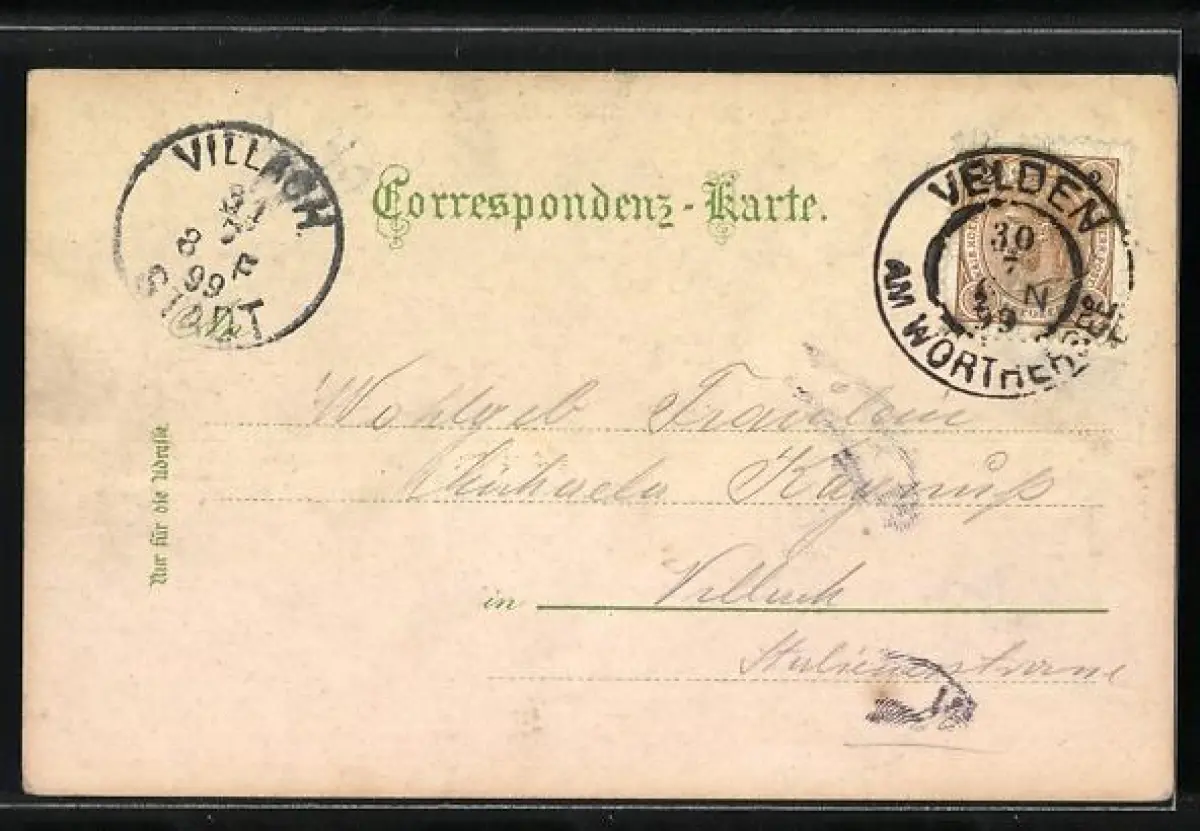 VILLACH
31
8 F
99
STADT
Correspondenz-Karte.
VELDEN
30
7
N
99
AM WÖRTHERSEE
2
Wohlgeb Fräulein
Villach
in
Italienerstrasse
Nur für die Adresse